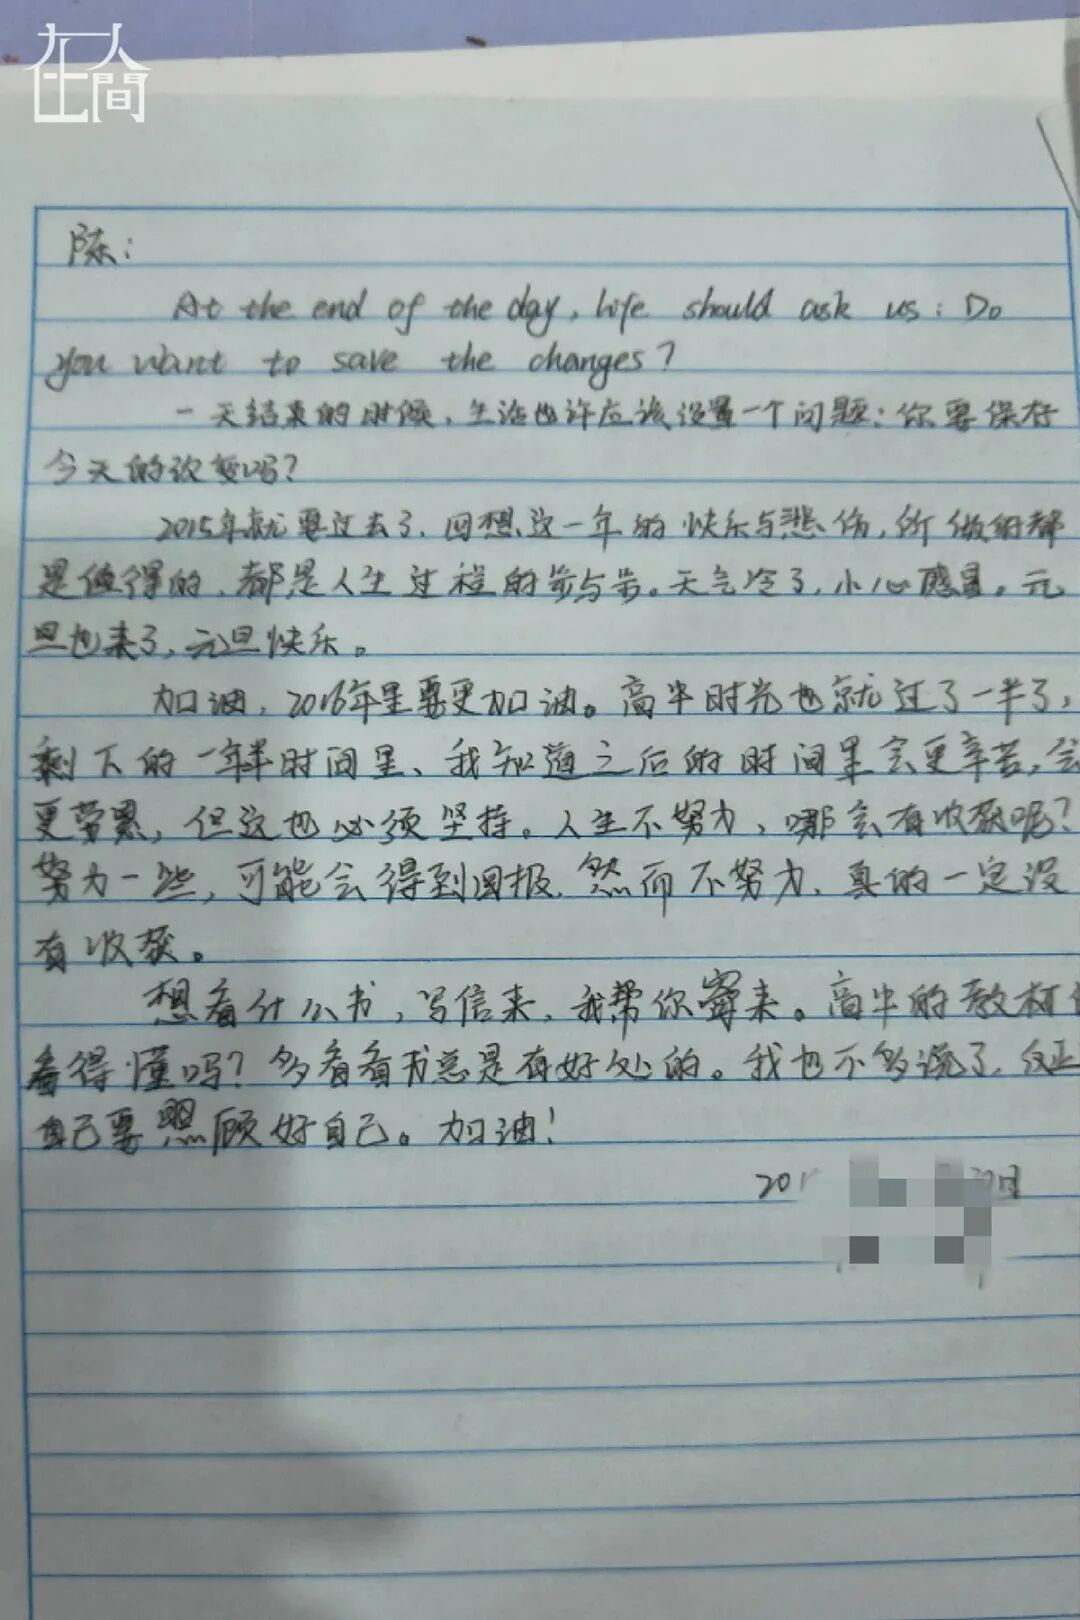 在人間
陈:
At the end of the day, life should ask us: Do
you want to save the changes?
一天结束的时候,生活也许应该设置一个问题:你要保存
今天的改变吗?
2015年就要过去了,回想这一年的快乐与悲伤,所做的都
是值得的,都是人生过程的步与步。天气冷了,小心感冒。元
旦也来了,元旦快乐。
加油,2016年里要更加油。高中时光也就过了一半了,
剩下的一年半时间里、我知道之后的时间里会更辛苦,会
更劳累,但这也必须坚持。人生不努力,哪会有收获呢?
努力一些,可能会得到回报,然而不努力,真的一定没
有收获。
想看什么书,写信来,我帮你寄来。高中的教材
看得懂吗?多看看书总是有好处的。我也不多说了,
自己要照顾好自己。加油!
201 日